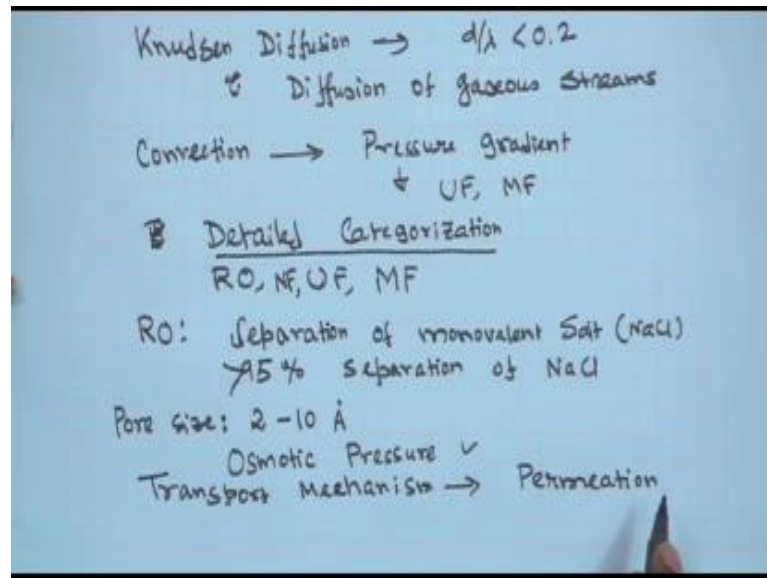 Knudsen Diffusion → d/λ < 0.2
Diffusion of gaseous streams
Convection → Pressure gradient
UF, MF
Detailed Categorization
RO, NF, UF, MF
RO: Separation of monovalent Salt (NaCl)
>95% separation of NaCl
Pore size: 2-10 Å
Osmotic Pressure ✓
Transport Mechanism → Permeation